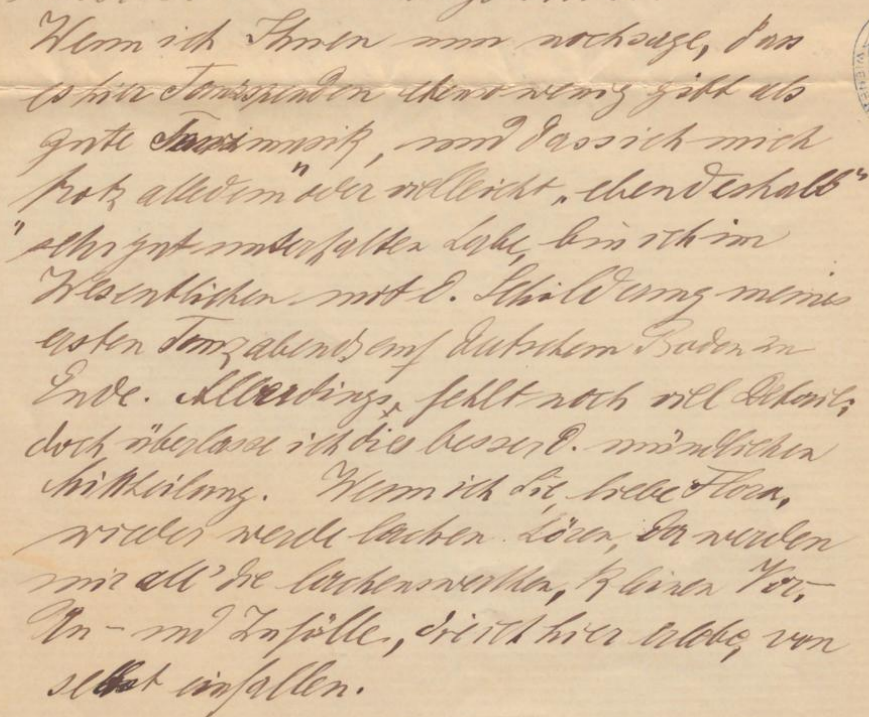 Wenn ich Ihnen nun noch sage, dass
es hier Tanzspenden ebenso wenig gibt als
gute Tanzmusik, und dass ich mich
trotz alledem" oder vielleicht „eben deshalb"
"sehr gut unterhalten habe, bin ich im
Wesentlichen mit d. Schilderung meines
ersten Tanzabends auf deutschem Boden zu
Ende. Allerdings fehlt noch viel Details,
doch überlasse ich dies besser d. mündlichen
Mittheilung. Wenn ich Sie, liebe Flora,
wieder werde lachen hören, da werden
mir all' die lachenswerthen, kleinen Vor-,
An- und Zufälle, die ich hier erlebe, von
selbst einfallen.
WIENER